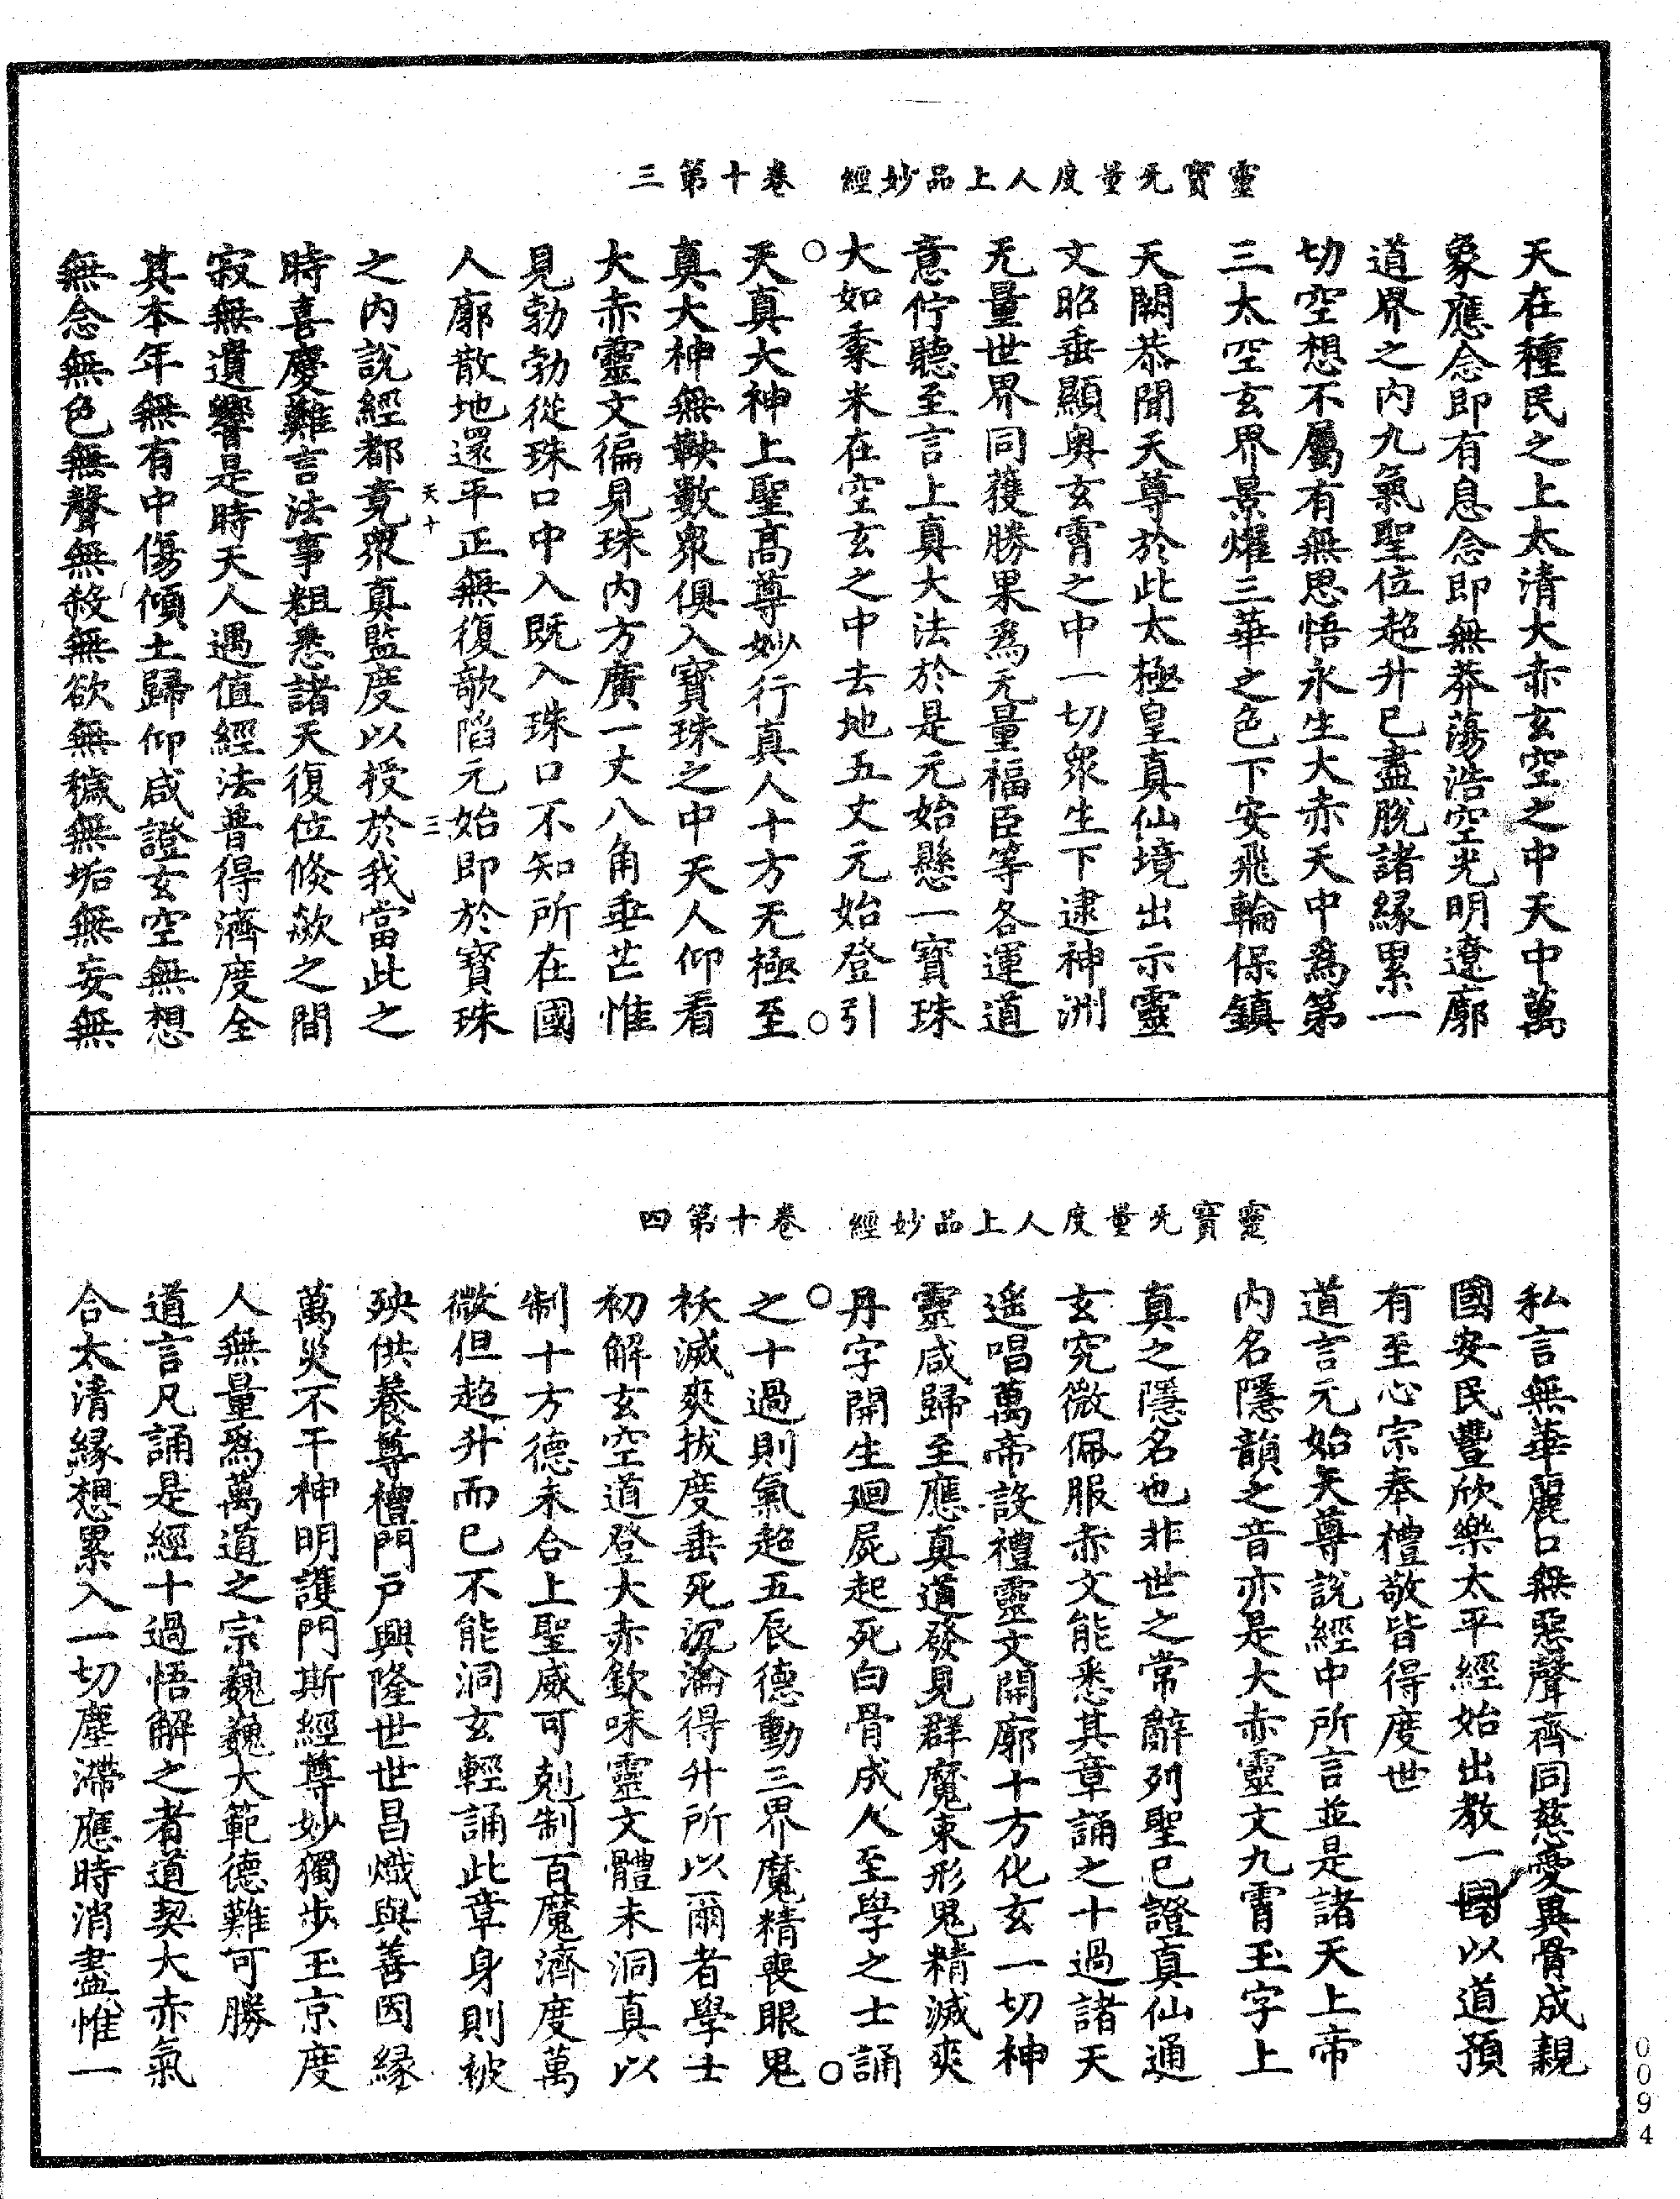 靈寶无量度人上品妙經　卷十第三
天在種民之上太清大赤玄空之中天中萬
象應念即有息念即無莽蕩浩空光明遼廓
道界之內九氣聖位超升已盡脫諸緣累一
切空想不屬有無思悟永生大赤天中為第
三太空玄界景燿三華之色下安飛輪保鎮
天闕恭聞天尊於此太極皇真仙境出示靈
文昭垂顯奥玄霄之中一切眾生下逮神洲
无量世界同獲勝果為无量福臣等各運道
意佇聽至言上真大法於是元始懸一寶珠
大如黍米在空玄之中去地五丈元始登引
○　○
天真大神上聖高尊妙行真人十方无極至
真大神無鞅數眾俱入寶珠之中天人仰看
大赤靈文徧見珠內方廣一丈八角垂芒惟
見勃勃從珠口中入既入珠口不知所在國
人廓散地還平正無復敧陷元始即於寶珠
天十　三
之內說經都竟眾真監度以授於我當此之
時喜慶難言法事粗悉諸天復位倏歘之間
寂無遺響是時天人遇值經法普得濟度全
其本年無有中傷傾土歸仰咸證玄空無想
無念無色無聲無殺無欲無穢無垢無妄無
靈寶无量度人上品妙經　卷十第四
私言無華麗口無惡聲齊同慈愛異骨成親
國安民豐欣樂太平經始出教一國以道預
有至心宗奉禮敬皆得度世
道言元始天尊說經中所言並是諸天上帝
內名隱韻之音亦是大赤靈文九霄玉字上
真之隱名也非世之常辭列聖已證真仙通
玄究微佩服赤文能悉其章誦之十過諸天
遙唱萬帝設禮靈文開廓十方化玄一切神
靈咸歸至應真道發見群魔束形鬼精滅爽
丹字開生廻屍起死白骨成人至學之士誦
○　○
之十過則氣超五辰德動三界魔精喪眼鬼
祅滅爽拔度垂死沉淪得升所以爾者學士
初解玄空道登大赤欽味靈文體未洞真以
制十方德未合上聖威可剋制百魔濟度萬
微但超升而已不能洞玄輕誦此章身則被
殃供養尊禮門戶興隆世世昌熾與善因緣
萬災不干神明護門斯經尊妙獨步玉京度
人無量為萬道之宗巍巍大範德難可勝
道言凡誦是經十過悟解之者道契大赤氣
合太清緣想累入一切塵滯應時消盡惟一
0094